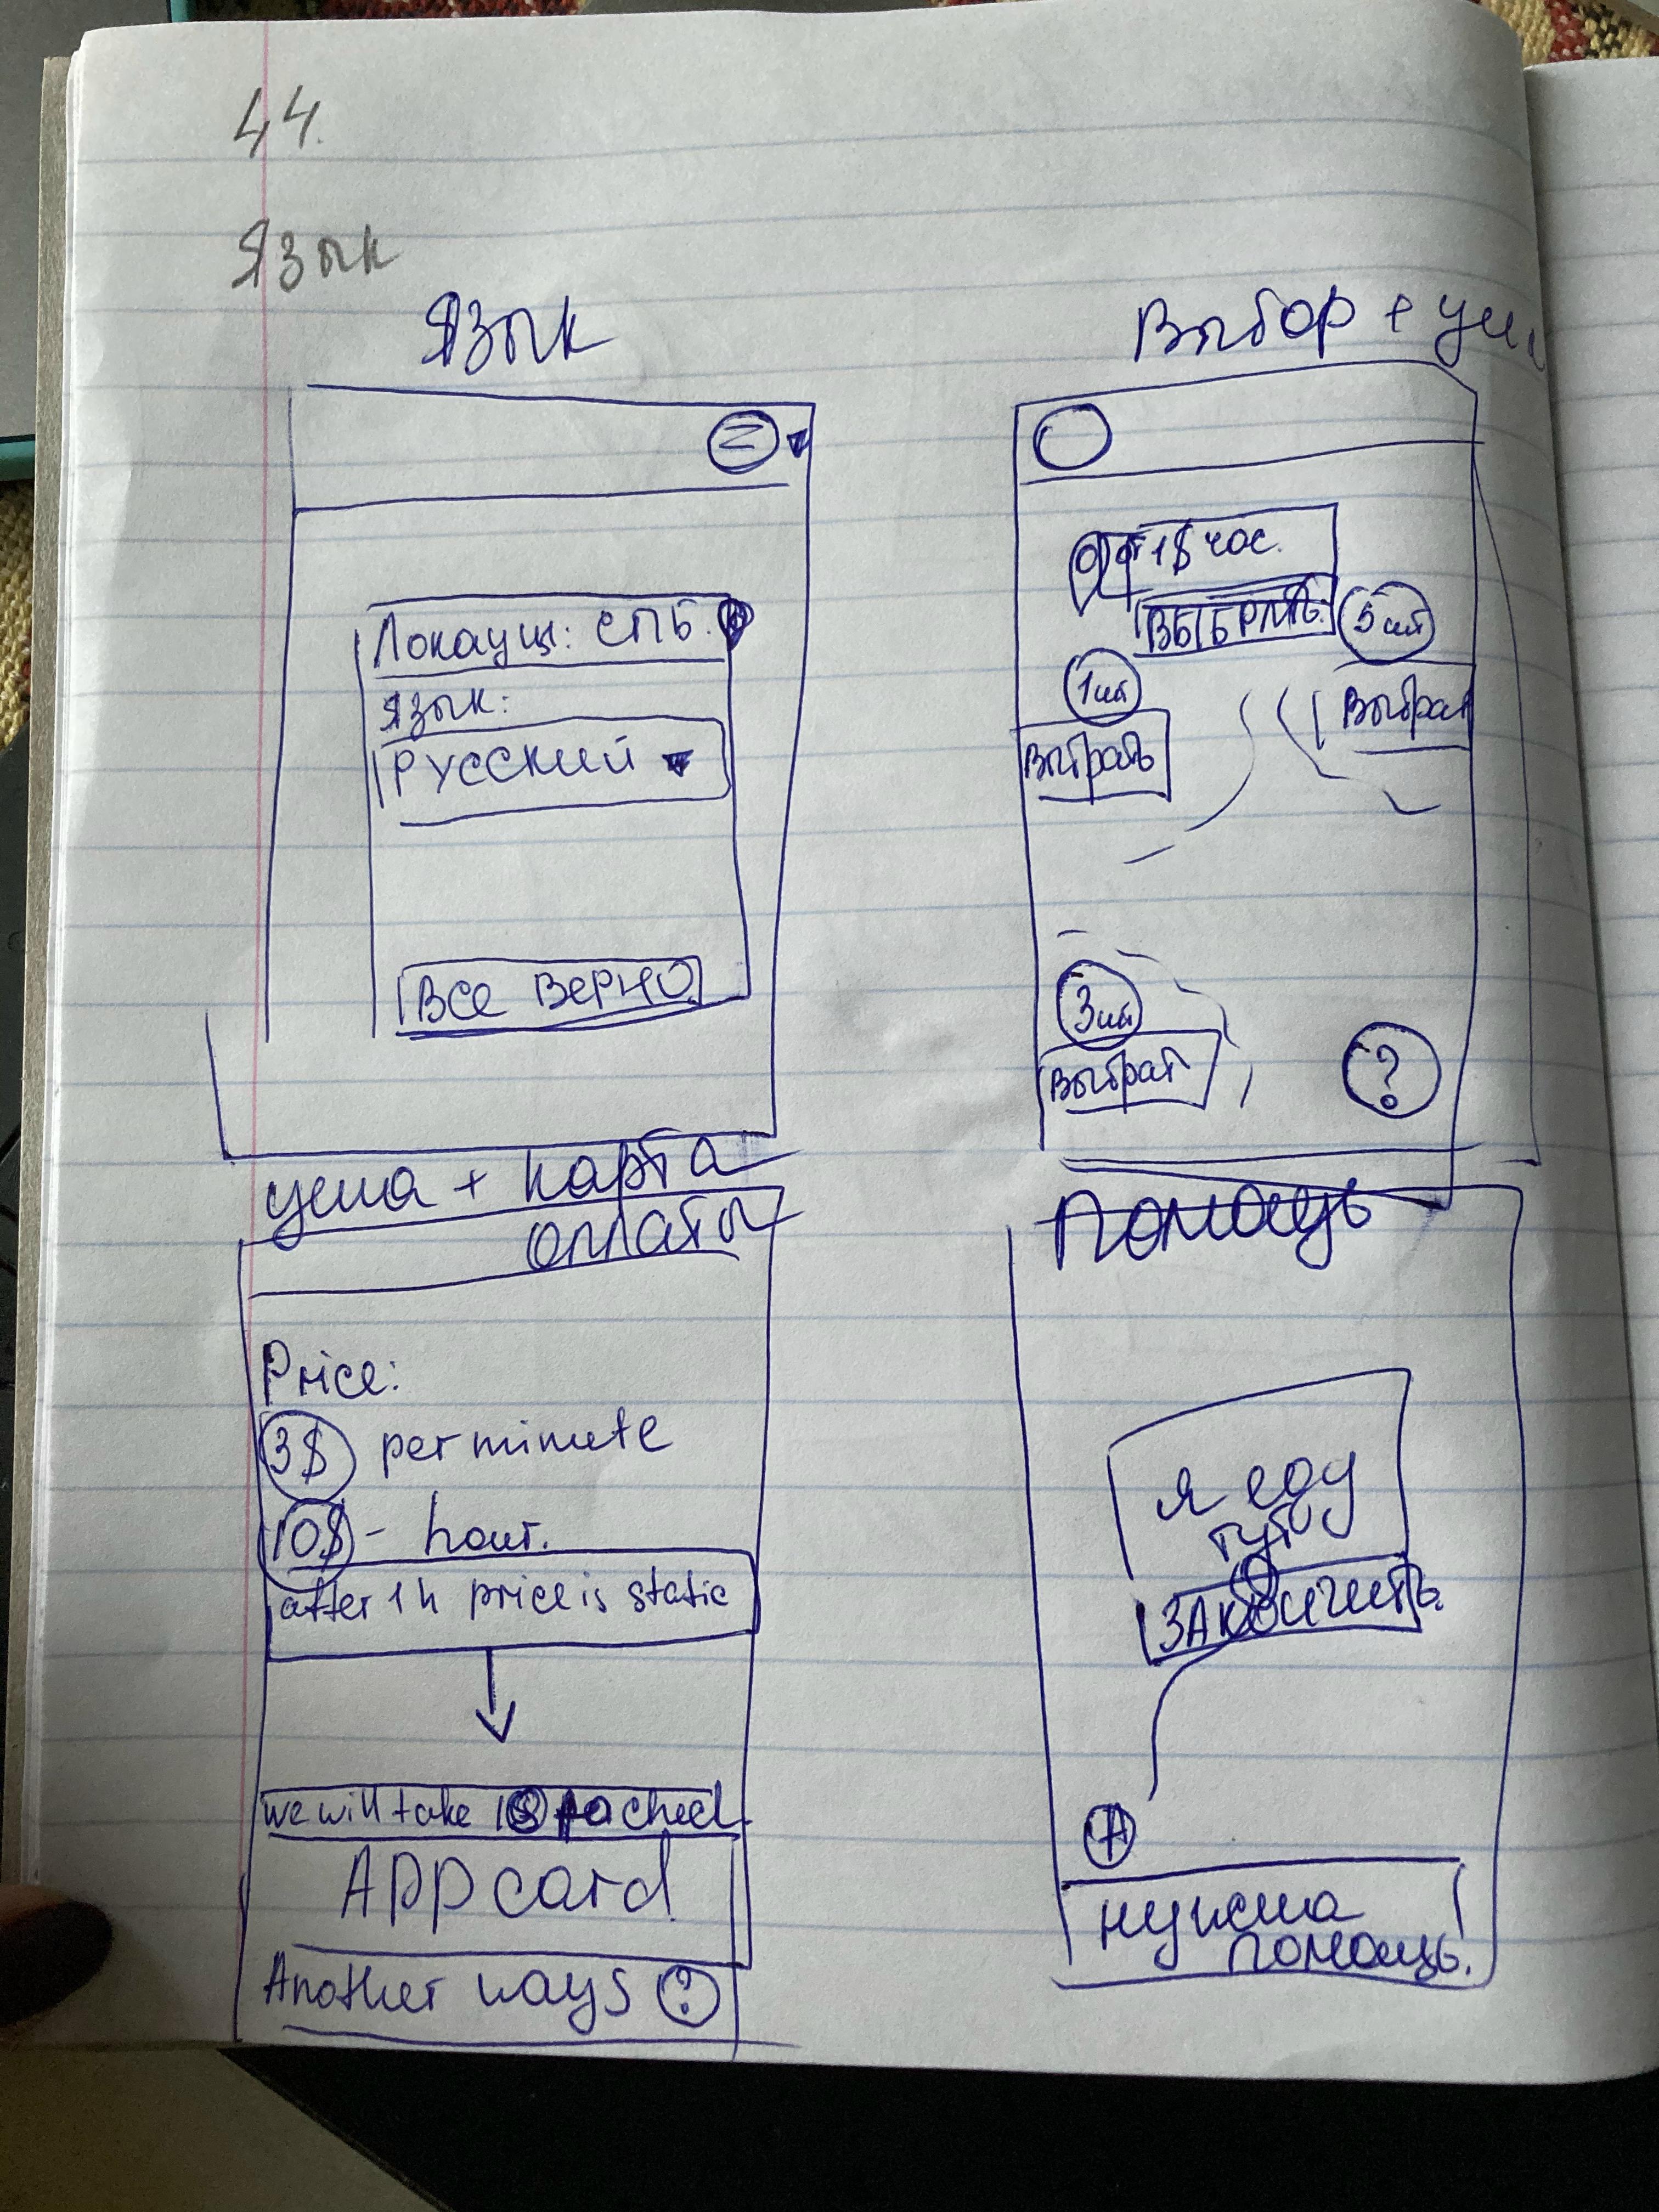 44.
Язык
Язык
Локация: СПБ.
Язык:
РУССКИЙ
Все верно
Выбор +
1$ час.
ВЫБРАТЬ
5 шт
1 шт
Выбрать
Выбрат
3 шт
Выбрат
?
цена + карта
оплаты
Price:
3$ per minute
10$ - hour.
after 1 h price is static
we will take 1$ to check
App card
Another ways ?
Помощь
я еду
тут
ЗАКОНЧИТЬ
A
нужна
помощь.